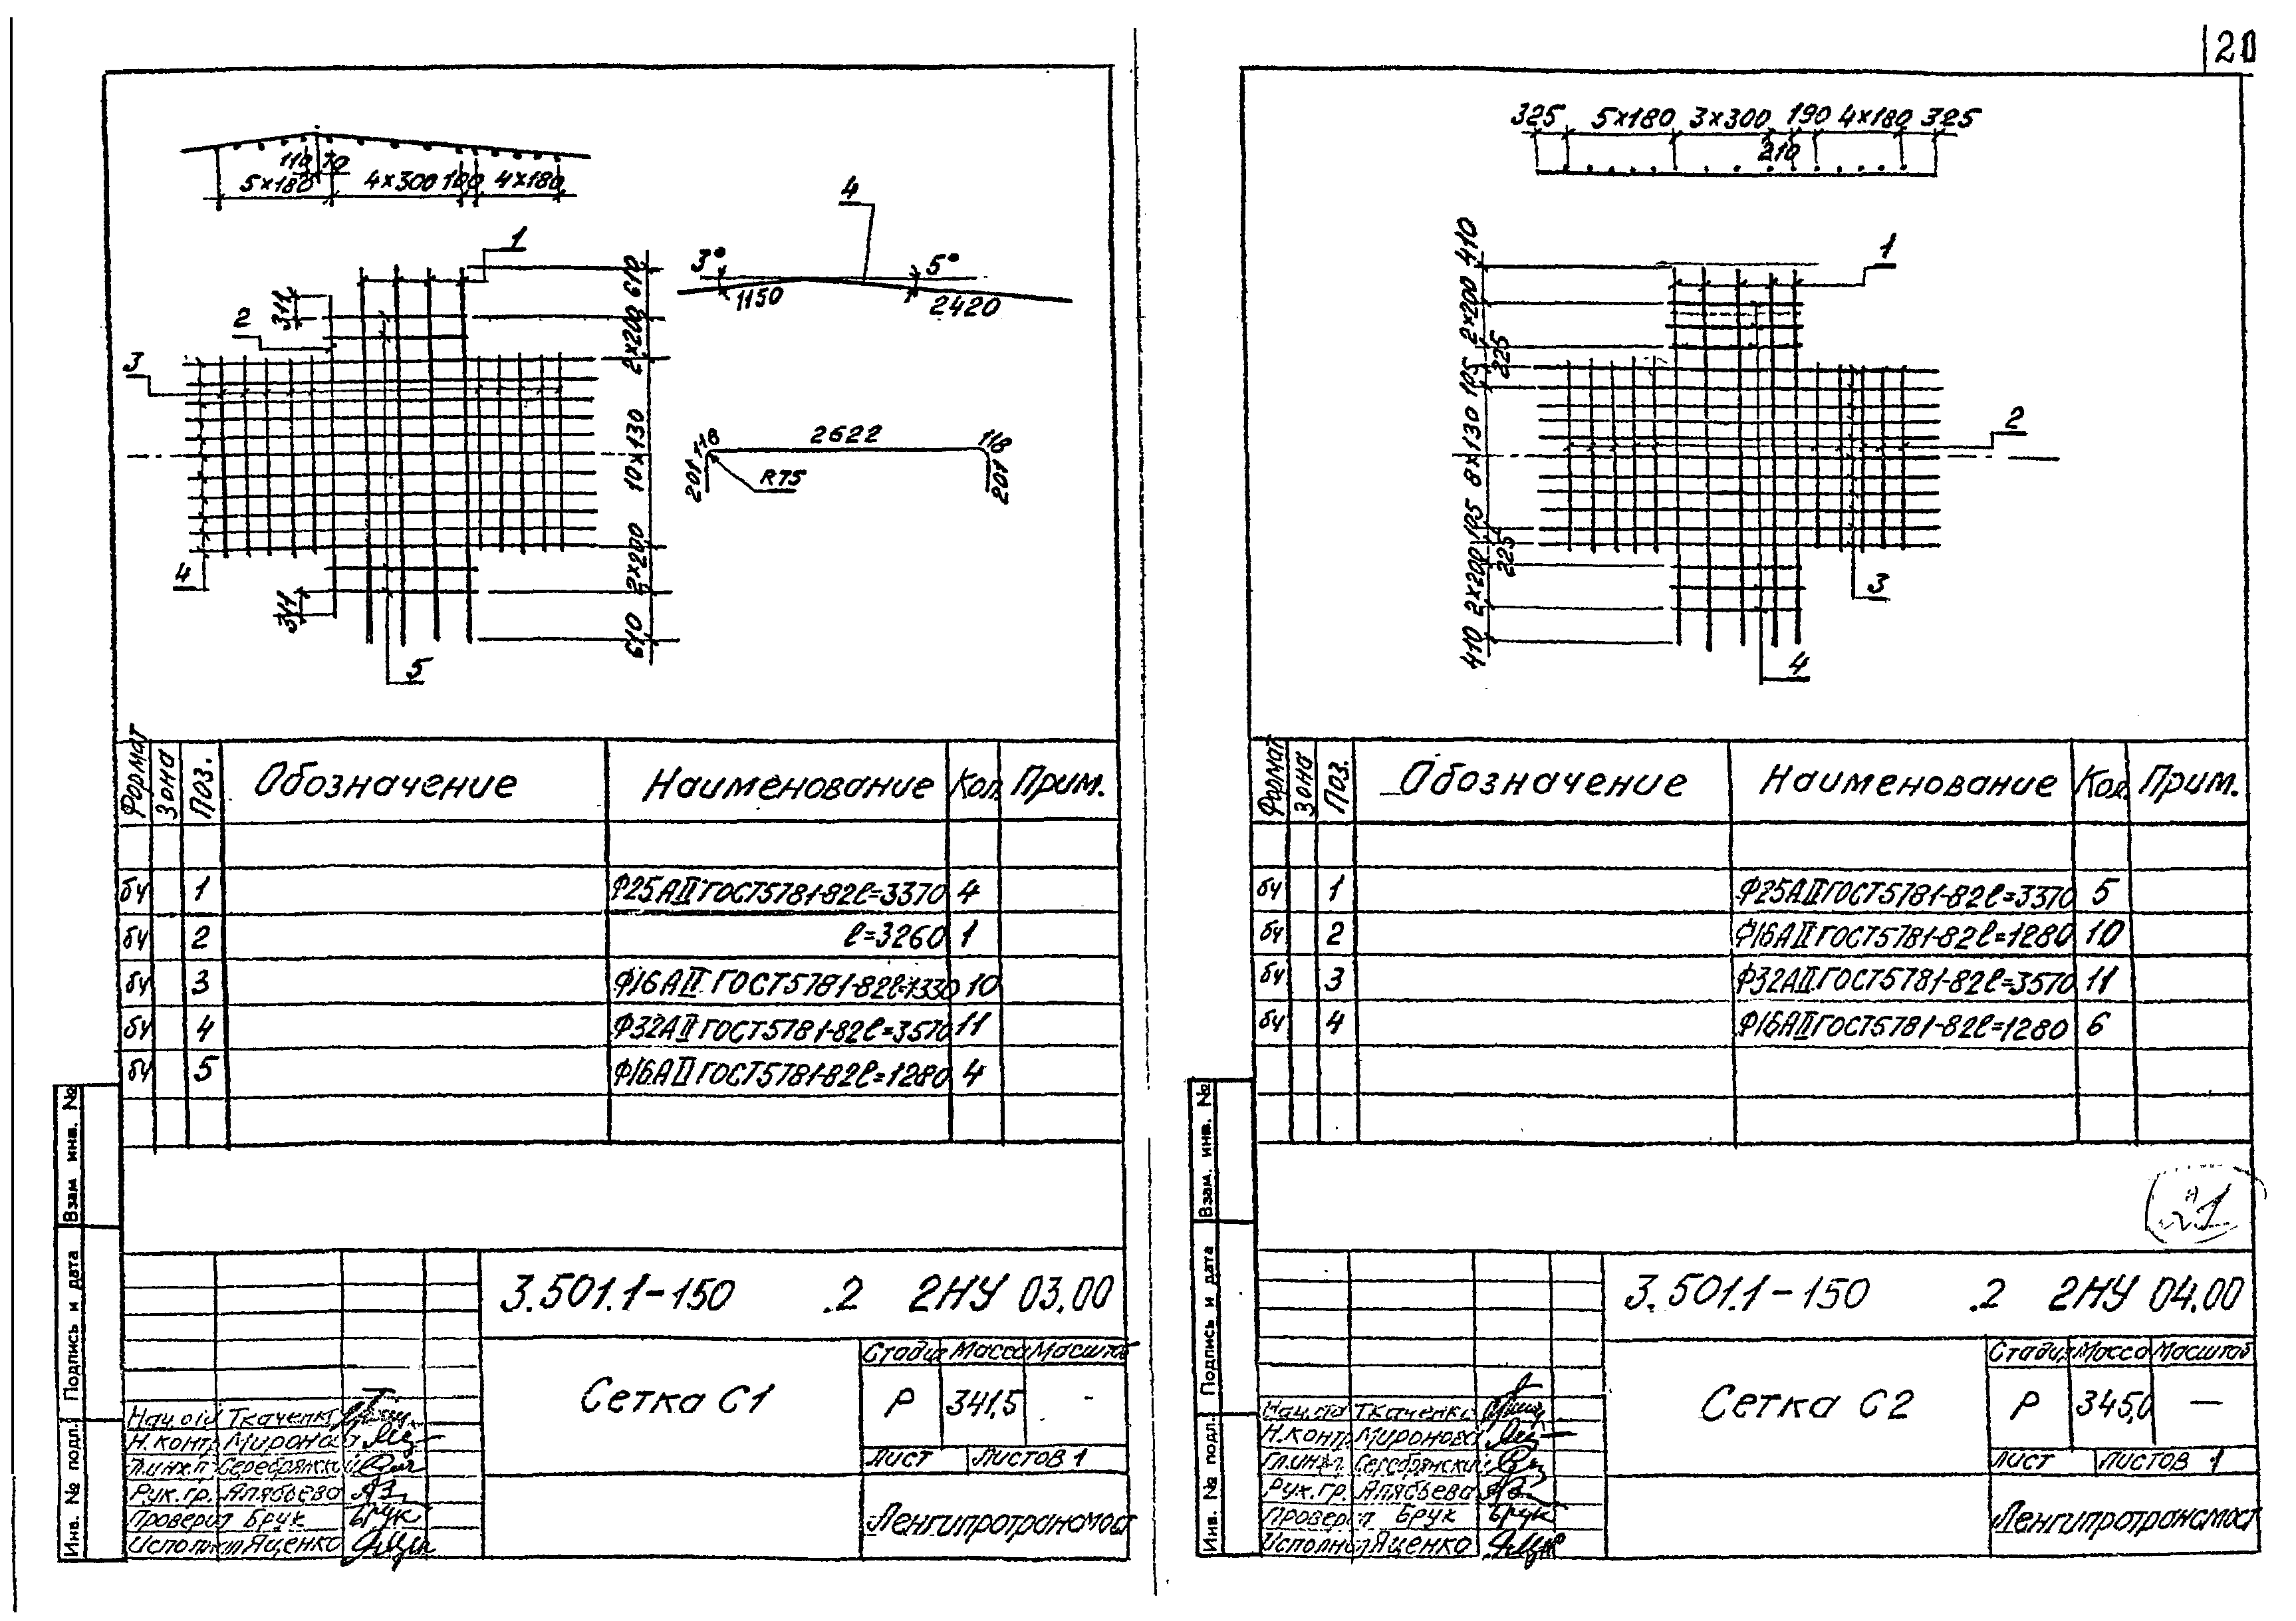 20
110 70
5×180 4×300 100 4×180
4
3° 5°
1150 2420
1
311
2
3
4
311
5
610
2×200
10×130
2×200
610
2622
118 118
201 201
R75
Формат Зона Поз. Обозначение Наименование Кол. Прим.
бч 1 Ф25АII ГОСТ5781-82 ℓ=3370 4
бч 2 ℓ=3260 1
бч 3 Ф16АII ГОСТ5781-82 ℓ=1330 10
бч 4 Ф32АII ГОСТ5781-82 ℓ=3570 11
бч 5 Ф16АII ГОСТ5781-82 ℓ=1280 4
Инв. № подл. Подпись и дата Взам. инв. №
3.501.1-150 .2 2НУ 03.00
Сетка С1
Стадия Масса Масштаб
Р 341,5 -
Лист Листов 1
Ленгипротрансмост
Нач.отд Ткаченко
Н.контр Миронова
Гл.инж.п Серебрянский
Рук.гр. Алябьева
Проверил Брук
Исполнил Яценко
325 5×180 3×300 190 4×180 325
210
1
2
3
4
410
2×200
225
195
8×130
195
225
2×200
410
Формат Зона Поз. Обозначение Наименование Кол. Прим.
бч 1 Ф25АII ГОСТ5781-82 ℓ=3370 5
бч 2 Ф16АII ГОСТ5781-82 ℓ=1280 10
бч 3 Ф32АII ГОСТ5781-82 ℓ=3570 11
бч 4 Ф16АII ГОСТ5781-82 ℓ=1280 6
21
Инв. № подл. Подпись и дата Взам. инв. №
3.501.1-150 .2 2НУ 04.00
Сетка С2
Стадия Масса Масштаб
Р 345,0 —
Лист Листов 1
Ленгипротрансмост
Нач.отд Ткаченко
Н.контр Миронова
Гл.инж.п. Серебрянский
Рук.гр. Алябьева
Проверил Брук
Исполнил Яценко